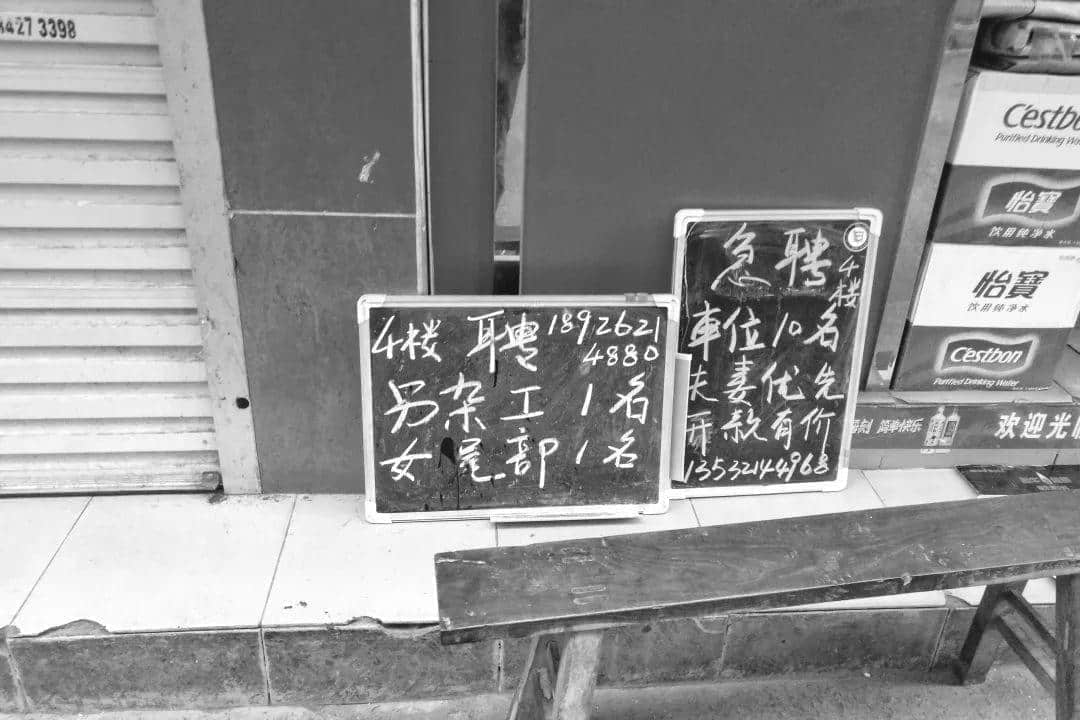 8427 3398
4楼 聘 18926214880
男杂工 1名
女尾部 1名
急聘
4楼
車位10名
夫妻优先
开款有价
13532144968
C'estbon
Purified Drinking Wa
怡寶
饮用纯净水
怡寶
饮用纯净水
C'estbon
Purified Drinking Water
简单快乐
欢迎光临